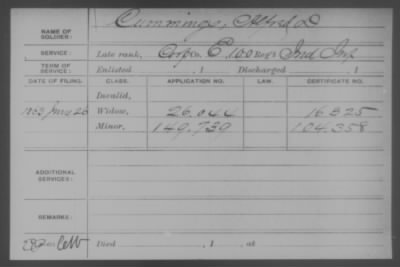 NAME OF SOLDIER: Cummings, Alfred D
SERVICE: Late rank, Corp Co. E, 100 Reg't Ind Inf
TERM OF SERVICE: Enlisted , 1 Discharged , 1
DATE OF FILING. CLASS. APPLICATION NO. LAW. CERTIFICATE NO.
Invalid,
1863 June 26 Widow, 26.044 16.325
Minor, 149.739 104.358
ADDITIONAL SERVICES:
REMARKS:
Died , 1 , at